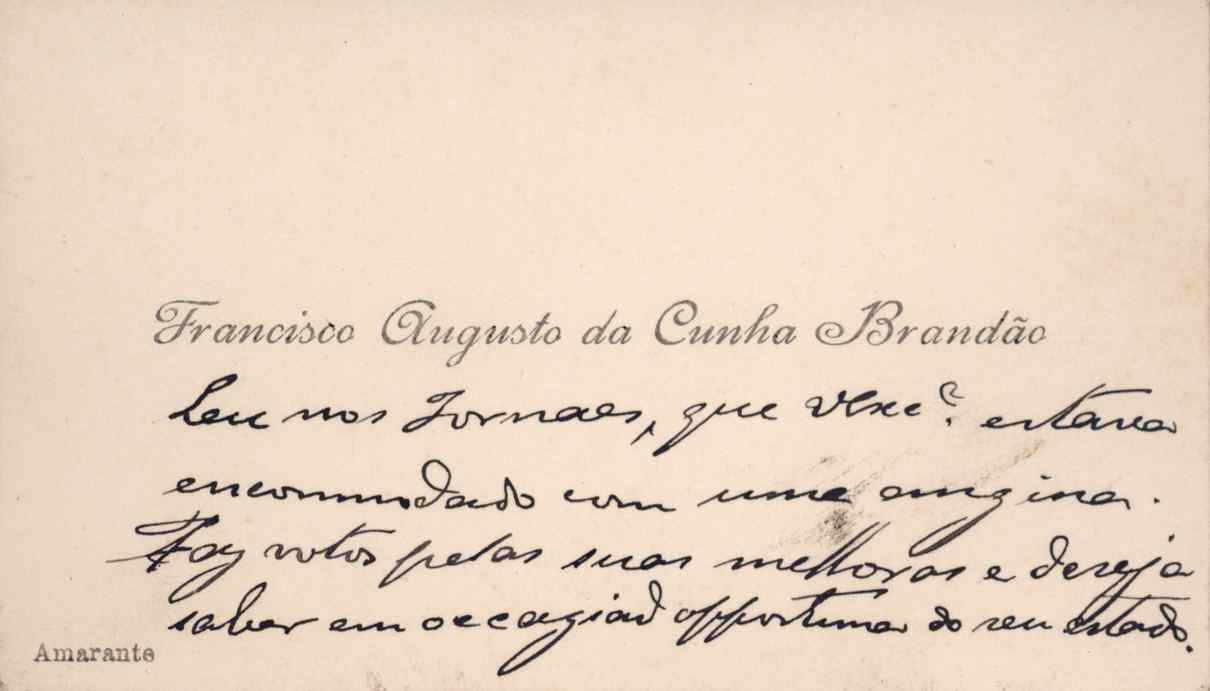 Francisco Augusto da Cunha Brandão
Leu nos Jornaes, que VExcª. estava
encommodado com uma angina.
Faz votos pelas suas melhoras e deseja
saber em occazião opportuna do seu estado.
Amarante